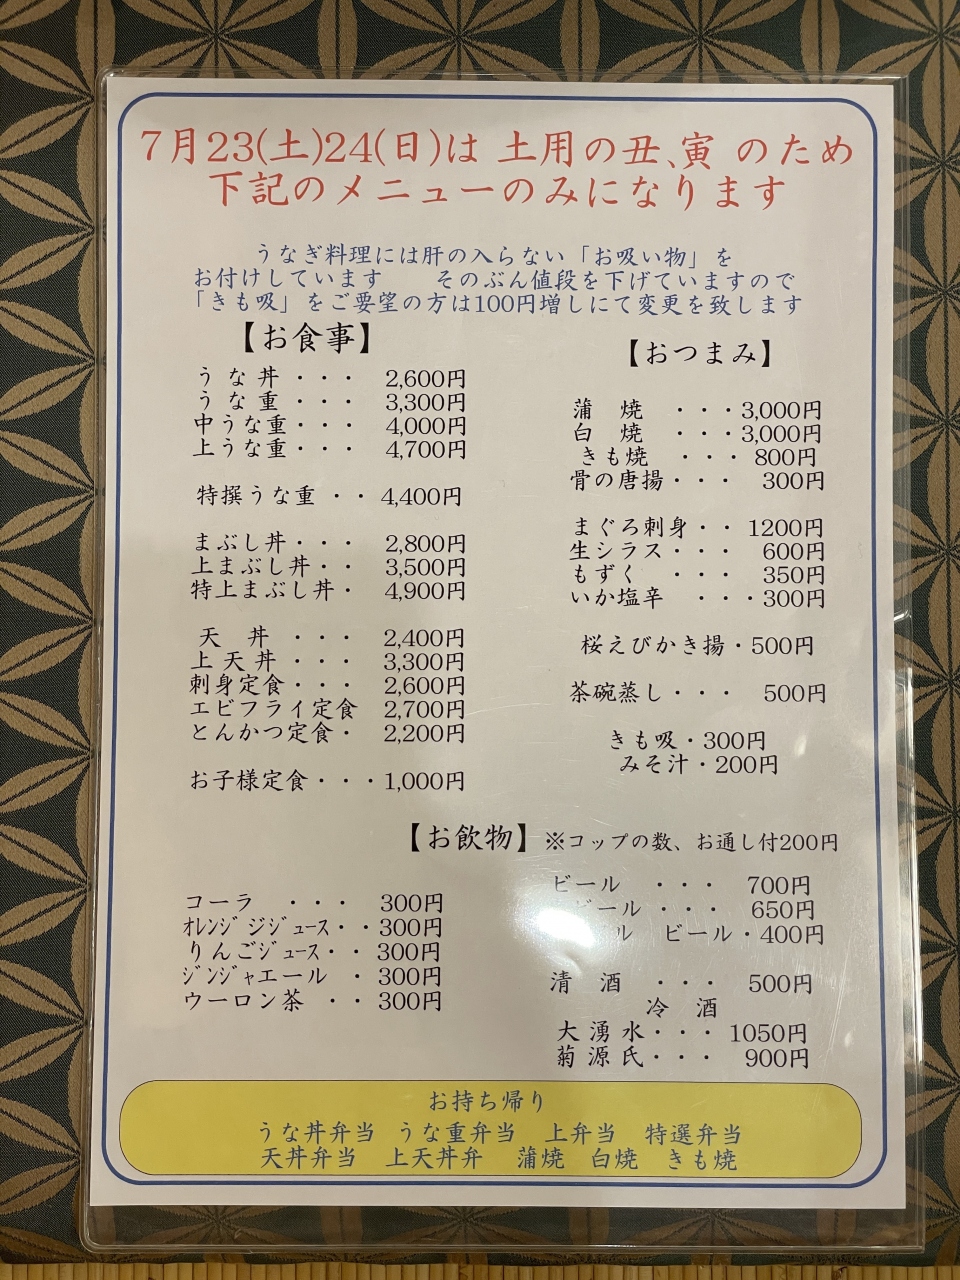 7月23(土)24(日)は 土用の丑、寅 のため
下記のメニューのみになります
うなぎ料理には肝の入らない「お吸い物」を
お付けしています　そのぶん値段を下げていますので
「きも吸」をご要望の方は100円増しにて変更を致します
【お食事】
うな丼・・・ 2,600円
うな重・・・ 3,300円
中うな重・・・ 4,000円
上うな重・・・ 4,700円
特撰うな重・・ 4,400円
まぶし丼・・・ 2,800円
上まぶし丼・・ 3,500円
特上まぶし丼・ 4,900円
天　丼・・・ 2,400円
上天丼・・・ 3,300円
刺身定食・・・ 2,600円
エビフライ定食 2,700円
とんかつ定食・ 2,200円
お子様定食・・・1,000円
【おつまみ】
蒲　焼・・・3,000円
白　焼・・・3,000円
きも焼・・・ 800円
骨の唐揚・・・ 300円
まぐろ刺身・・ 1200円
生シラス・・・ 600円
もずく・・・ 350円
いか塩辛・・・300円
桜えびかき揚・500円
茶碗蒸し・・・ 500円
きも吸・300円
みそ汁・200円
【お飲物】※コップの数、お通し付200円
コーラ・・・ 300円
ｵﾚﾝｼﾞｼﾞｭｰｽ・・300円
りんごｼﾞｭｰｽ・・300円
ｼﾞﾝｼﾞｬエール・300円
ウーロン茶・・300円
ビール・・・ 700円
ビール・・・ 650円
ル ビール・400円
清　酒・・・ 500円
冷　酒
大湧水・・・ 1050円
菊源氏・・・ 900円
お持ち帰り
うな丼弁当　うな重弁当　上弁当　特選弁当
天丼弁当　上天丼弁　蒲焼　白焼　きも焼